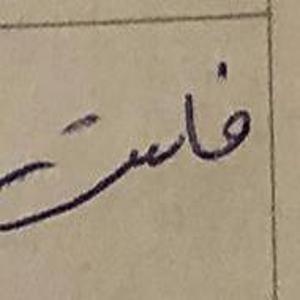 فاست